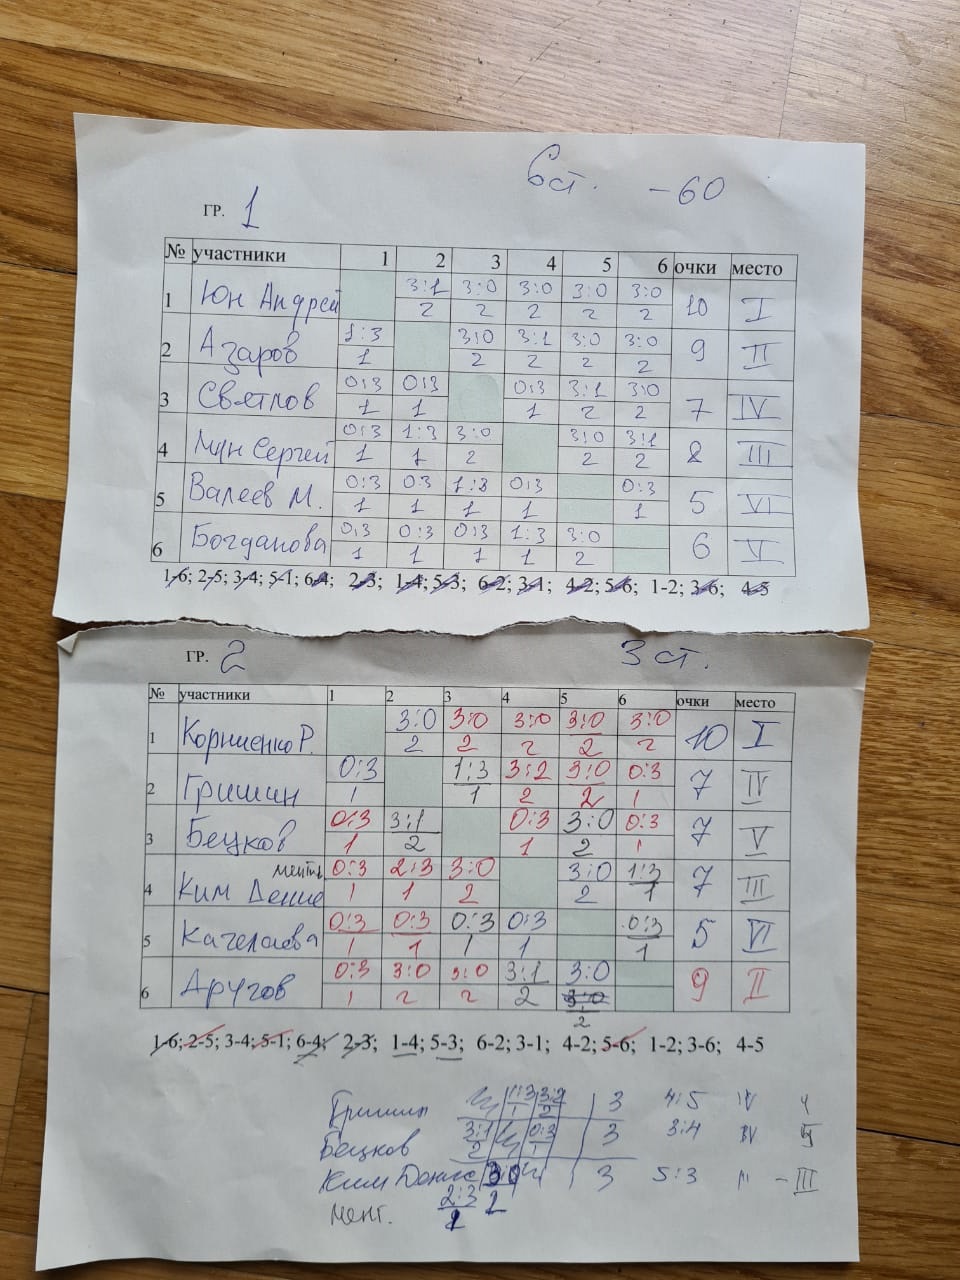 6 ст. -60
ГР. 1
№ участники 1 2 3 4 5 6 очки место
1 Юн Андрей 3:1 3:0 3:0 3:0 3:0 10 I
2 2 2 2 2
2 Азаров 1:3 3:0 3:1 3:0 3:0 9 II
1 2 2 2 2
3 Светлов 0:3 0:3 0:3 3:1 3:0 7 IV
1 1 1 2 2
4 Мун Сергей 0:3 1:3 3:0 3:0 3:1 8 III
1 1 2 2 2
5 Валеев М. 0:3 0:3 1:3 0:3 0:3 5 VI
1 1 1 1 1
6 Богданова 0:3 0:3 0:3 1:3 3:0 6 V
1 1 1 1 2
1-6; 2-5; 3-4; 5-1; 6-4; 2-3; 1-4; 5-3; 6-2; 3-1; 4-2; 5-6; 1-2; 3-6; 4-5
ГР. 2 3 ст.
№ участники 1 2 3 4 5 6 очки место
1 Корниенко Р. 3:0 3:0 3:0 3:0 3:0 10 I
2 2 2 2 2
2 Гришин 0:3 1:3 3:2 3:0 0:3 7 IV
1 1 2 2 1
3 Бецков 0:3 3:1 0:3 3:0 0:3 7 V
1 2 1 2 1
4 Ким Денис 0:3 2:3 3:0 3:0 1:3 7 III
1 1 2 2 1
5 0:3 0:3 0:3 0:3 0:3 5 VI
1 1 1 1 1
6 Другов 0:3 3:0 3:0 3:1 3:0 9 II
1 2 2 2 3:0
2
1-6; 2-5; 3-4; 5-1; 6-4; 2-3; 1-4; 5-3; 6-2; 3-1; 4-2; 5-6; 1-2; 3-6; 4-5
Гришин 1:3 3:2 3 4:5 IV
1 2
Бецков 3:1 0:3 3 3:4
2 1
Ким Денис 3:0 3 5:3 III - III
2:3 2
мент.